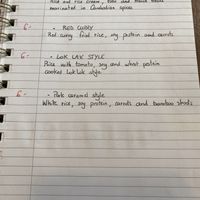 Rice and rice cream, tofu and mixed beans
marinated in Cambodian spices
6-
- RED CURRY
Red curry fried rice, soy protein and carrots
6-
- LOK LAK STYLE
Rice with tomato, soy and wheat protein
cooked Lok Lak style
6-
- Pork caramel style
White rice, soy protein, carrots and bamboo shoots